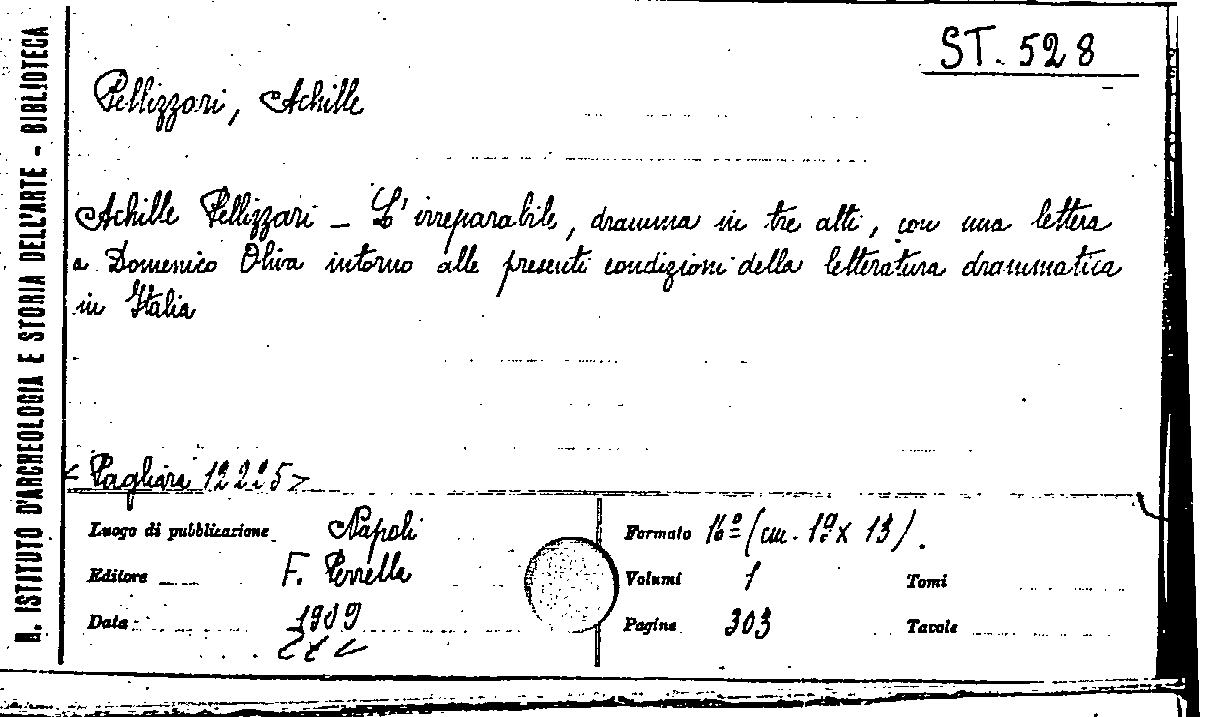 R. ISTITUTO D'ARCHEOLOGIA E STORIA DELL'ARTE - BIBLIOTECA
ST. 528
Pellizzari, Achille
Achille Pellizzari – L'irreparabile, dramma in tre atti, con una lettera
a Domenico Oliva intorno alle presenti condizioni della letteratura drammatica
in Italia
< Pagliara 12225 >
Luogo di pubblicazione Napoli
Editore F. Perrella
Data 1909
Formato 16º (cm. 19 x 13).
Volumi 1
Tomi
Pagine 303
Tavole